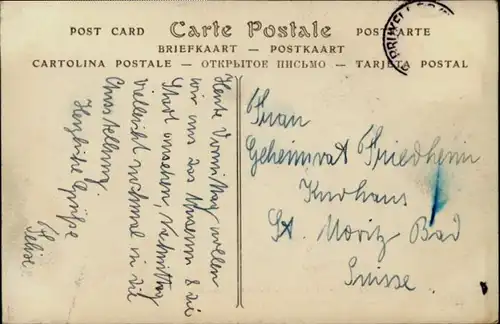 POST CARD Carte Postale POSTKARTE
BRIEFKAART — POSTKAART
CARTOLINA POSTALE — ОТКРЫТОЕ ПИСЬМО — TARJETA POSTAL
Heute Vormittag wollen
wir uns das Museum & die
Stadt ansehen, Nachmittag
vielleicht nochmal in die
Ausstellung
Herzliche Grüße
Felix
Frau
Geheimrat Friedheim
Kurhaus
St. Moritz Bad
Suisse.